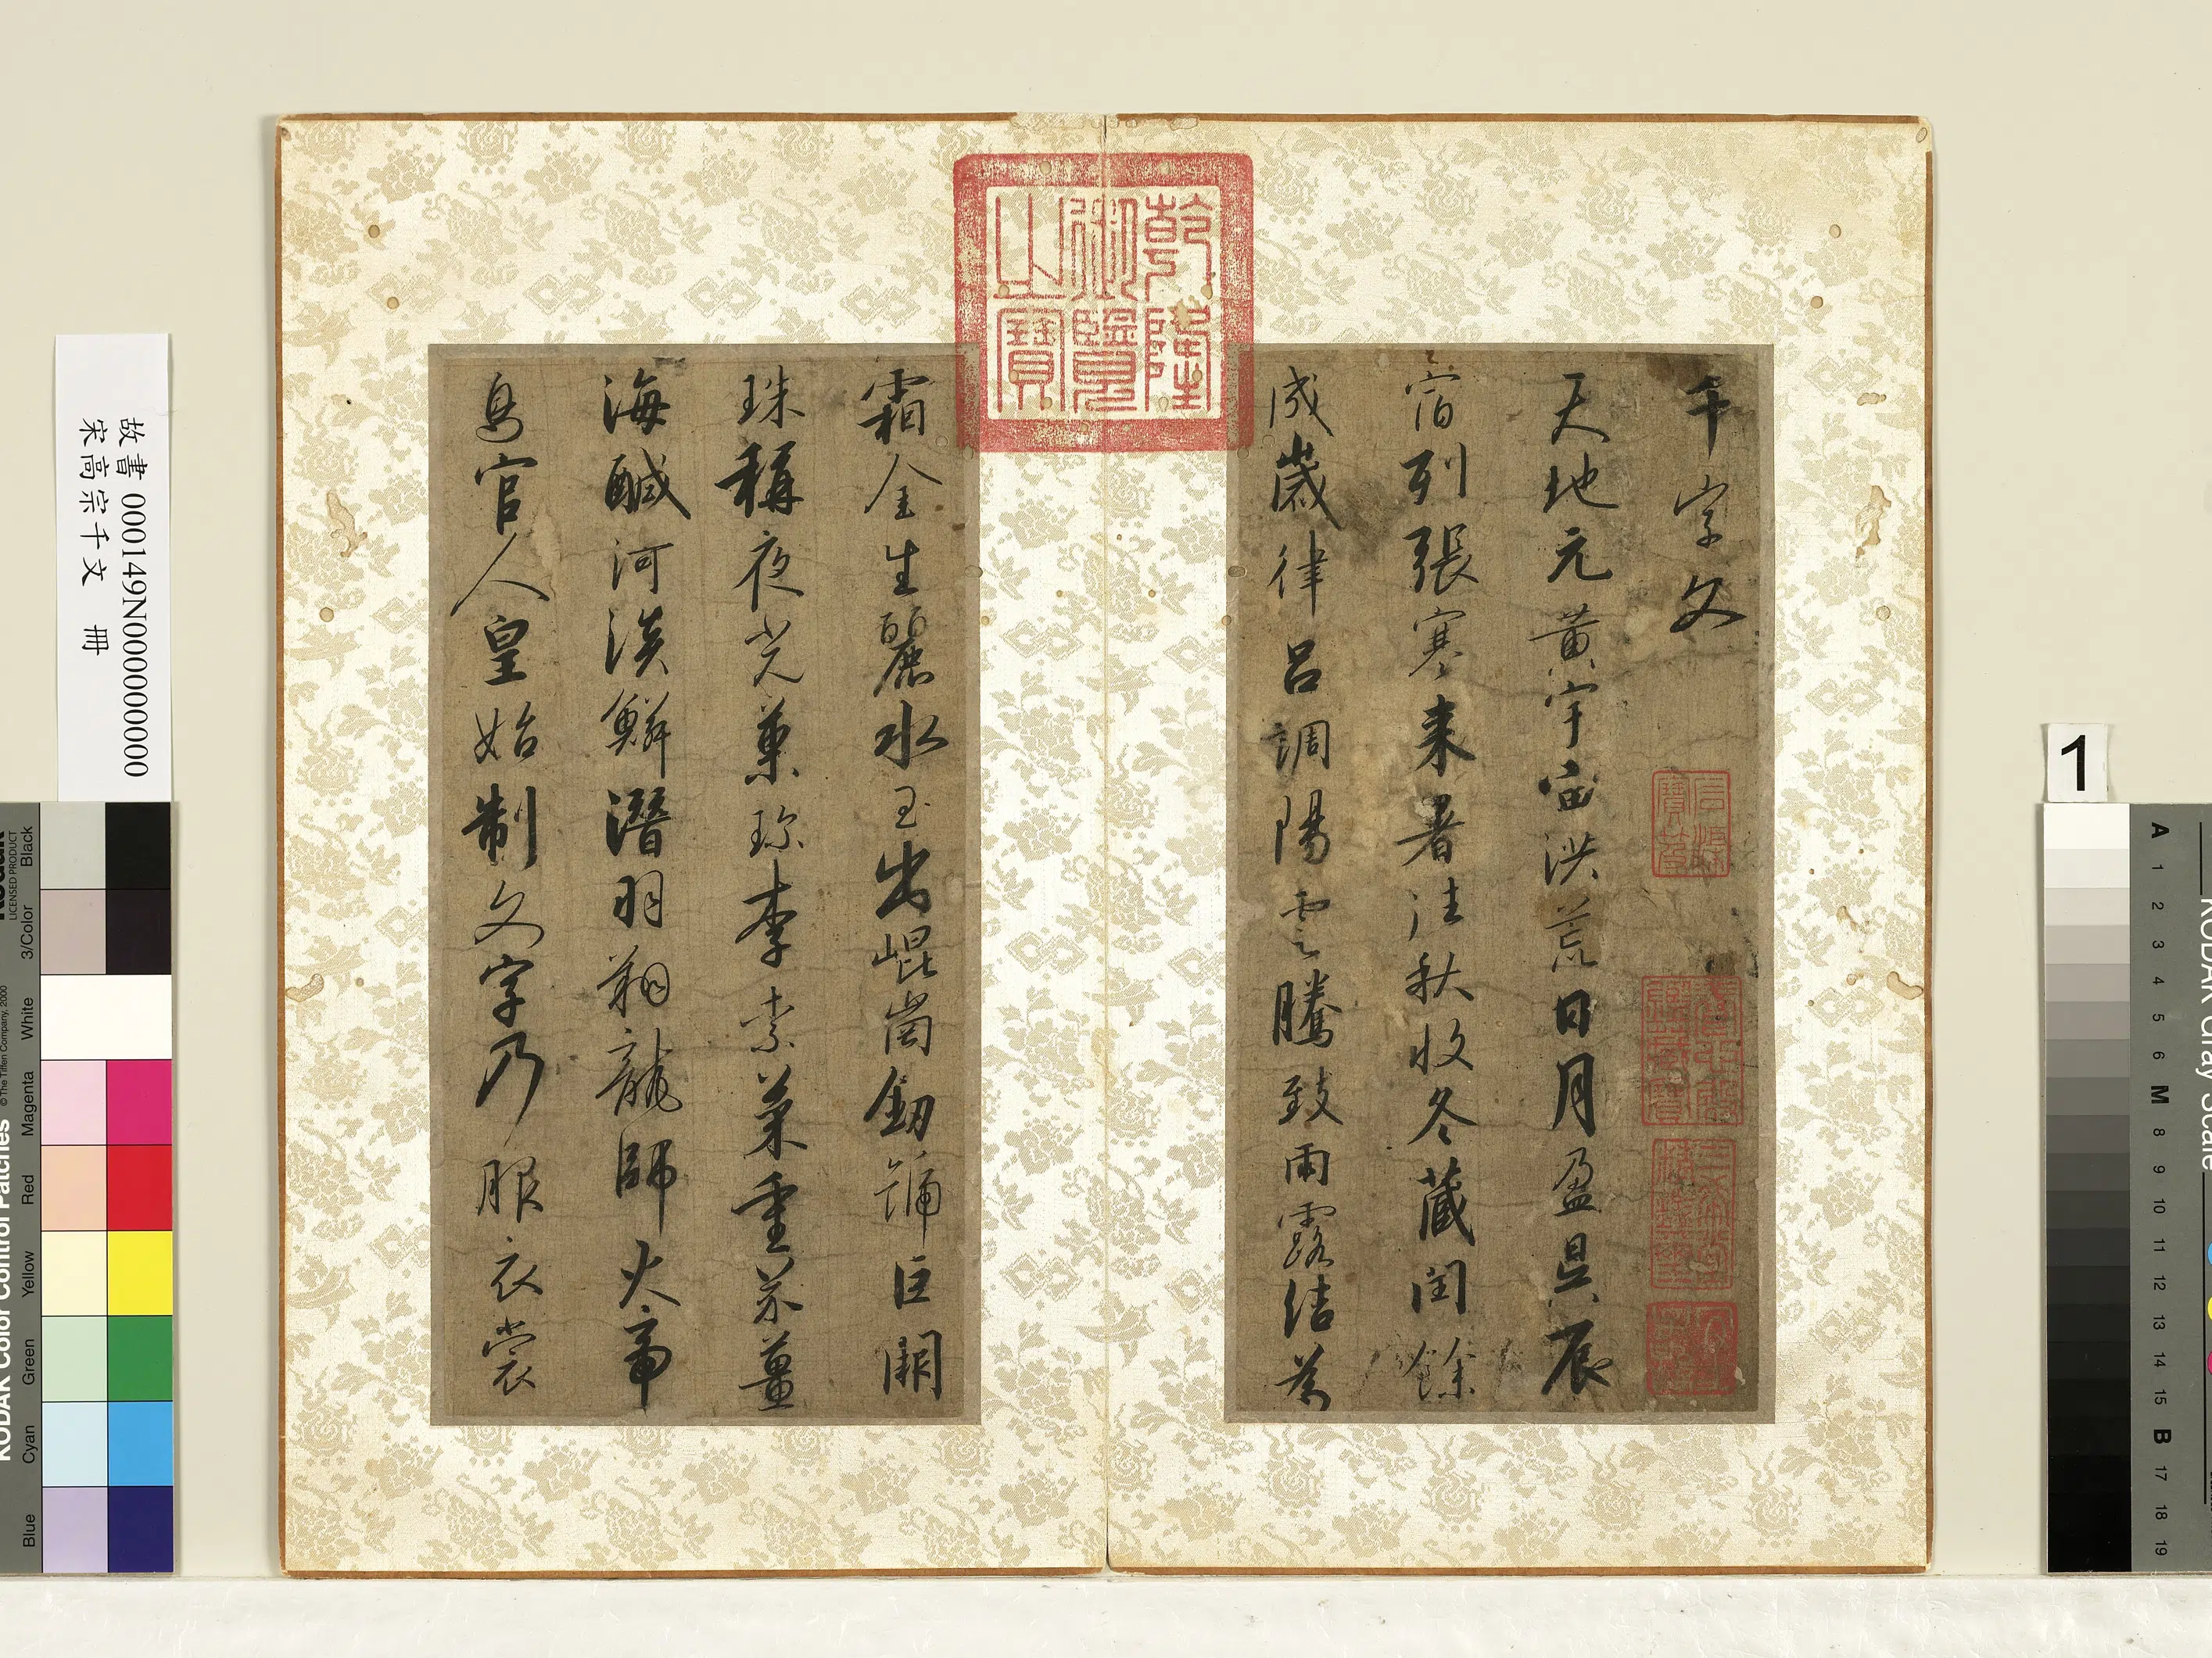 千字文
天地元黃宇宙洪荒日月盈昃辰
宿列張寒来暑往秋收冬藏閏餘
成歲律呂調陽雲騰致雨露結為
霜金生麗水玉出崐崗釰巨闕
珠稱夜光菓珍李柰菜重芥薑
海鹹河淡鱗潛羽翔龍師火帝
鳥官人皇始制文字乃服衣裳
乾隆御覽之寶
石渠寶笈
養心殿鑑藏寶
三希堂精鑑璽
宜子孫
故書 000149N000000000
宋高宗千文 冊
1
KODAK Color Control Patches
©The Tiffen Company, 2000
Kodak
LICENSED PRODUCT
Blue Cyan Green Yellow Red Magenta White 3/Color Black
KODAK Gray Scale
A 1 2 3 4 5 6 M 8 9 10 11 12 13 14 15 B 17 18 19